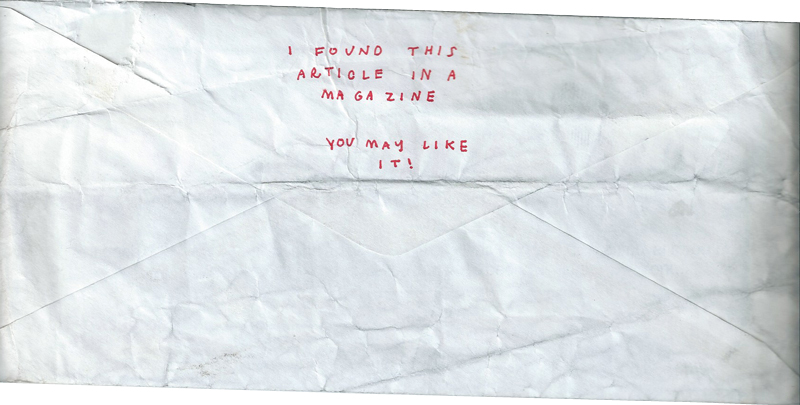 I FOUND THIS
ARTICLE IN A
MAGAZINE
YOU MAY LIKE
IT!